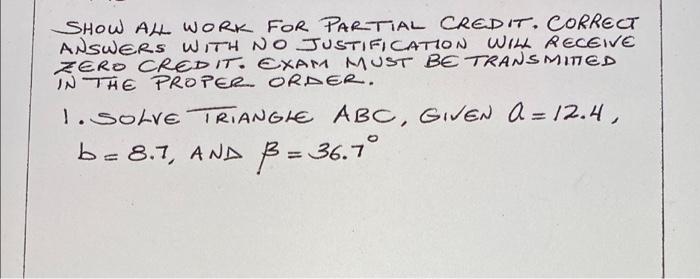 SHOW ALL WORK FOR PARTIAL CREDIT. CORRECT
ANSWERS WITH NO JUSTIFICATION WILL RECEIVE
ZERO CREDIT. EXAM MUST BE TRANSMITTED
IN THE PROPER ORDER.
1. SOLVE TRIANGLE ABC, GIVEN a = 12.4,
b = 8.7, AND β = 36.7°